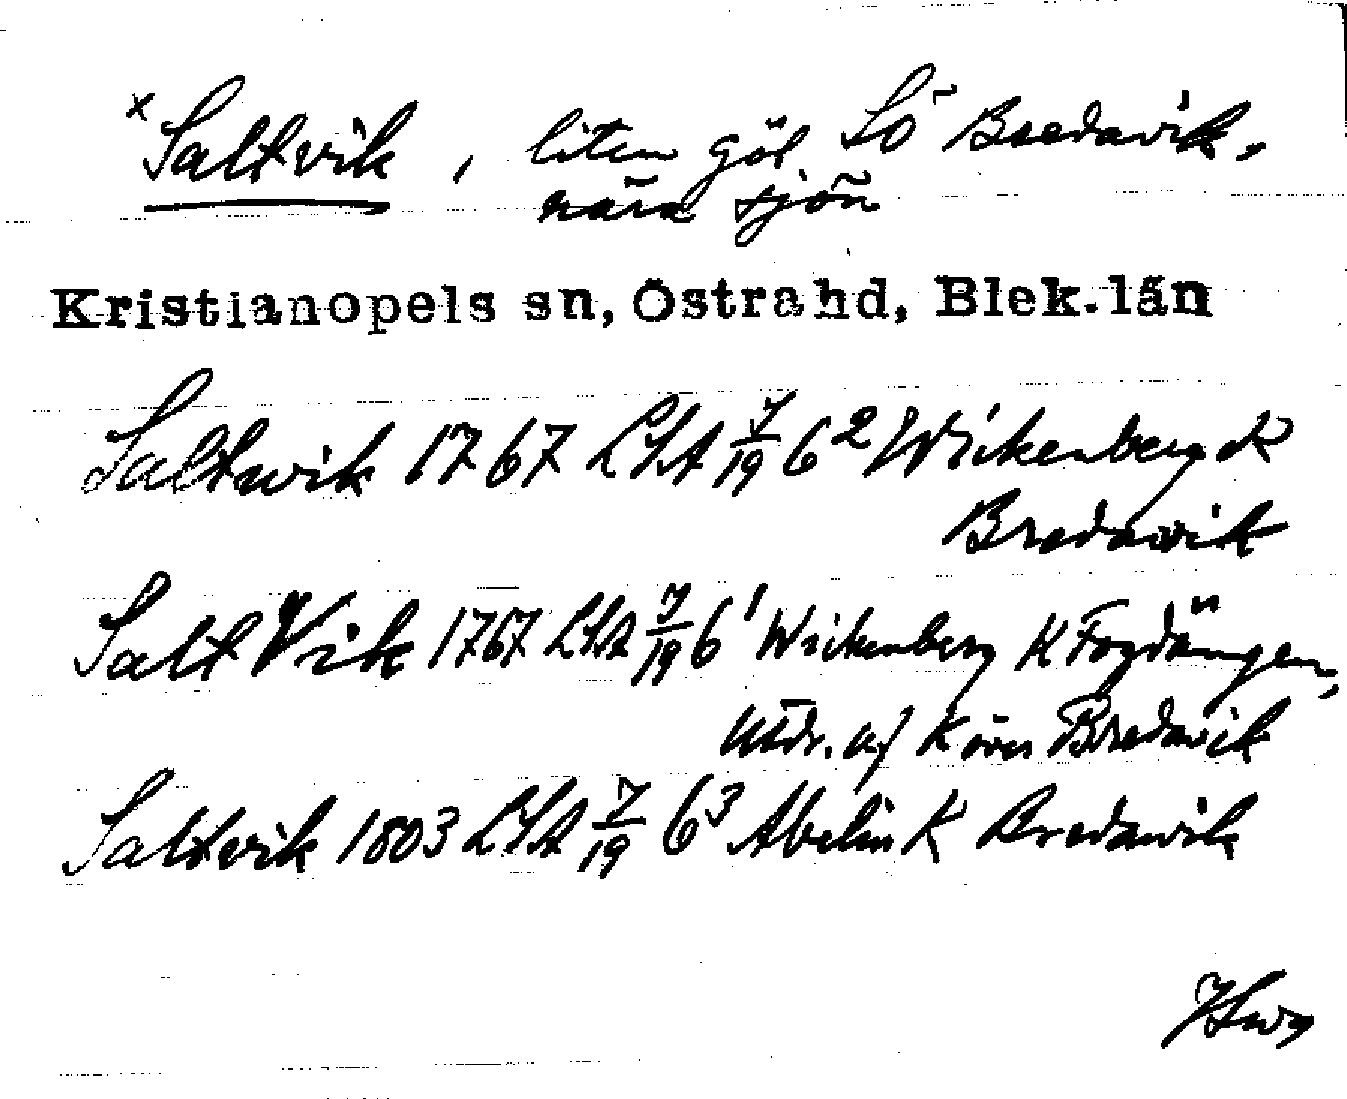 x Saltvik, liten göl SÖ Bredavik,
nära sjön
Kristianopels sn, Östra hd, Blek. län
Saltwik 1767 LSA 7/19 6² Wikenberg K
Bredawik
Salt Vik 1767 LSA 7/19 6¹ Wikenberg K Fogdängen,
utdr. af K över Bredawik
Saltvik 1803 LSA 7/19 6³ Abelin K Bredawik